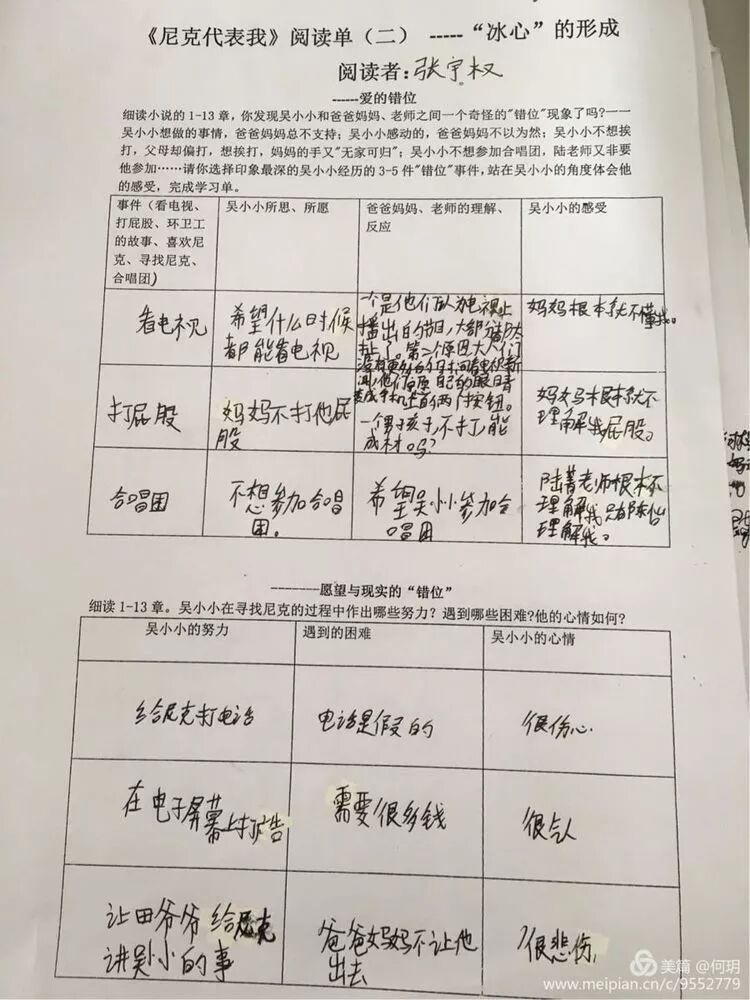 《尼克代表我》阅读单（二） -----“冰心”的形成
阅读者：张宇权
------爱的错位
细读小说的1-13章，你发现吴小小和爸爸妈妈、老师之间一个奇怪的"错位"现象了吗？——
吴小小想做的事情，爸爸妈妈总不支持；吴小小感动的，爸爸妈妈不以为然；吴小小不想挨
打，父母却偏打，想挨打，妈妈的手又"无家可归"；吴小小不想参加合唱团，陆老师又非要
他参加……请你选择印象最深的吴小小经历的3-5件"错位"事件，站在吴小小的角度体会他
的感受，完成学习单。
事件（看电视、
打屁股、环卫工
的故事、喜欢尼
克、寻找尼克、
合唱团）
吴小小所思、所愿
爸爸妈妈、老师的理解、
反应
吴小小的感受
看电视
希望什么时候
都能看电视
一个是他们认为电视上
播出的节目，大部分都太
扯了。第二个原因大人们
妈妈根本就不懂我。
打屁股
妈妈不打他屁
股
一个男孩子，不打，能
成材吗？
妈妈根本就不
理解我屁股。
合唱团
不想参加合唱
团。
希望吴小小参加合
唱团
陆菁老师根本不
理解我
理解我。
--------愿望与现实的“错位”
细读1-13章。吴小小在寻找尼克的过程中作出哪些努力？遇到哪些困难?他的心情如何?
吴小小的努力
遇到的困难
吴小小的心情
给尼克打电话
电话是假的
很伤心
在电子屏幕上打广告
需要很多钱
很气人
让田爷爷给尼克
讲吴小小的事
爸爸妈妈不让他
出去
很悲伤
美篇 @何玥
www.meipian.cn/c/9552779